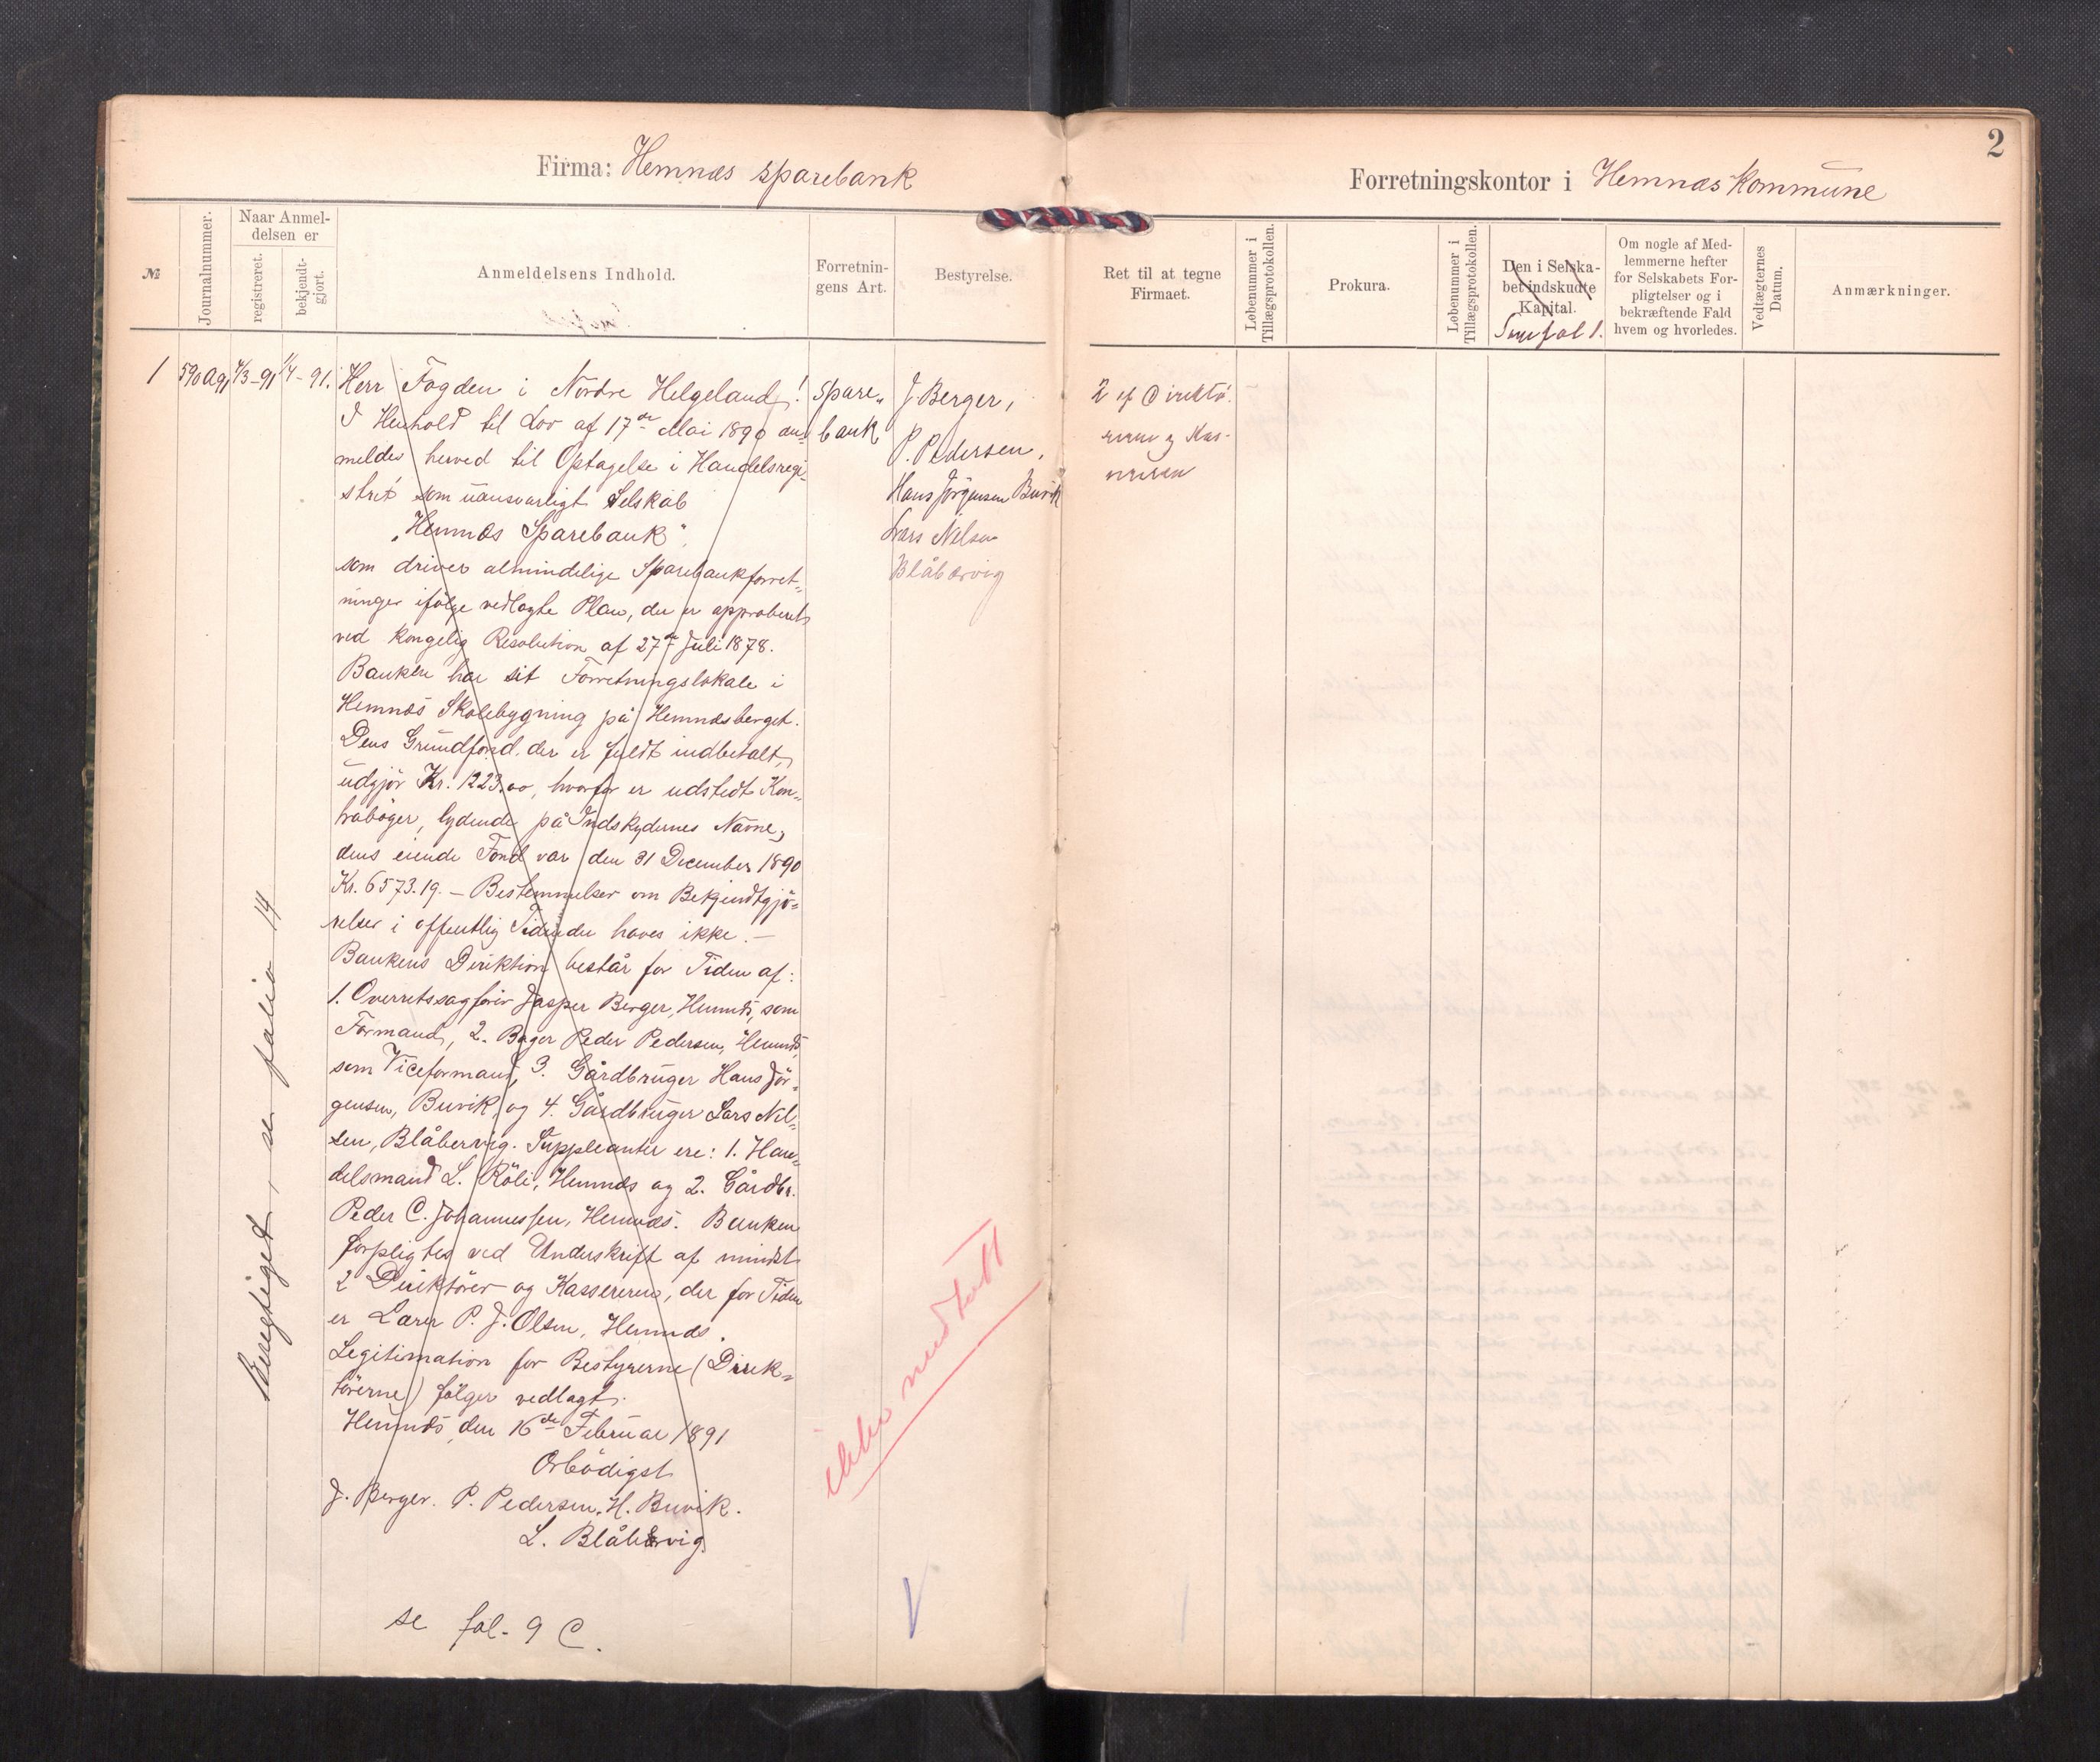 Firma: Hemnæs sparebank
№
Journalnummer.
Naar Anmel-
delsen er
registreret.
bekjendt-
gjort.
Anmeldelsens Indhold.
Forretnin-
gens Art.
Bestyrelse.
1
590a91
4/3-91
1/4-91.
Herr Fogden i Nordre Helgeland!
I Henhold til Lov af 17de Mai 1890 an-
meldes herved til Optagelse i Handelsregi-
stret som uansvarligt Selskab
"Hemnæs Sparebank",
som driver almindelige Sparebankforret-
ninger ifølge vedlagte Plan, der er approberet
ved kongelig Resolution af 27de Juli 1878.
Banken har sit Forretningslokale i
Hemnæs Skolebygning på Hemnæsberget.
Dens Grundfond, der er fuldt indbetalt,
udgjör Kr. 1223.00, hvorfor er udstedt Kon-
traböger, lydende på Indskydernes Navne,
dens eiende Fond var den 31 December 1890
Kr. 6573.19. – Bestemmelser om Bekjendtgjö-
relser i offentlig Tidende haves ikke. –
Bankens Direktion består for Tiden af:
1. Overretssagförer Jasper Berger, Hemnæs, som
Formand, 2. Bager Peder Pedersen, Hemnæs,
som Viceformand, 3. Gårdbruger Hans Jör-
gensen, Buvik, og 4. Gårdbruger Lars Nil-
sen, Blåbærvig. Suppleanter ere: 1. Han-
delsmand L. Röli, Hemnæs og 2. Gårdbr.
Peder C. Johannessen, Hemnæs. Banken
forpligtes ved Underskrift af mindst
2 Direktörer og Kassereren, der for Tiden
er Lærer P. J. Olsen, Hemnæs.
Legitimation for Bestyrerne (Direk-
törerne) fölger vedlagt.
Hemnæs, den 16de Februar 1891
Örbödigst
J. Berger. P. Pedersen. H. Buvik.
L. Blåbærvig
se fol. 9 C.
Spare-
bank
J. Berger,
P. Pedersen,
Hans Jörgensen Buvik
Lars Nilsen
Blåbærvig
Berigtiget, se folio 14
ikke medtatt
2
Forretningskontor i Hemnæs kommune
Ret til at tegne
Firmaet.
Løbenummer i
Tillægsprotokollen.
Prokura.
Løbenummer i
Tillægsprotokollen.
Den i Selska-
bet indskudte
Kapital.
Om nogle af Med-
lemmerne hefter
for Selskabets For-
pligtelser og i
bekræftende Fald
hvem og hvorledes.
Vedtægternes
Datum.
Anmærkninger.
2 af Direktö-
rerne og Kas-
sereren